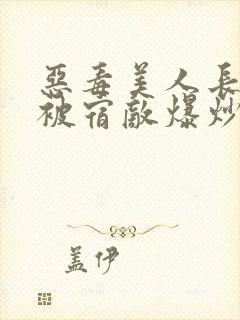 惡毒美人長
被宿敵爆炒
盖伊